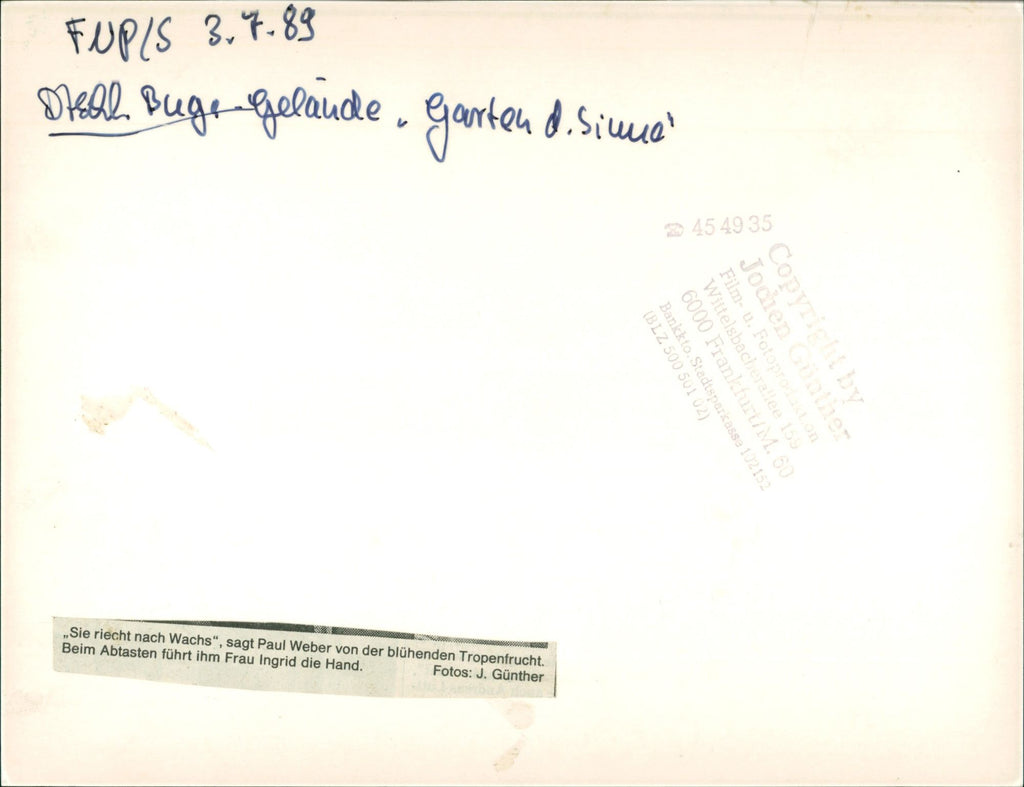 FNP/S 3.7.89
Buga-Gelände „Garten d. Sinne"
☎ 45 49 35
Copyright by
Jochen Günther
Film- u. Fotoproduktion
Wittelsbacherallee 159
6000 Frankfurt/M. 60
Bankkto. Stadtsparkasse 102152
(BLZ 500 501 02)
„Sie riecht nach Wachs“, sagt Paul Weber von der blühenden Tropenfrucht.
Beim Abtasten führt ihm Frau Ingrid die Hand. Fotos: J. Günther